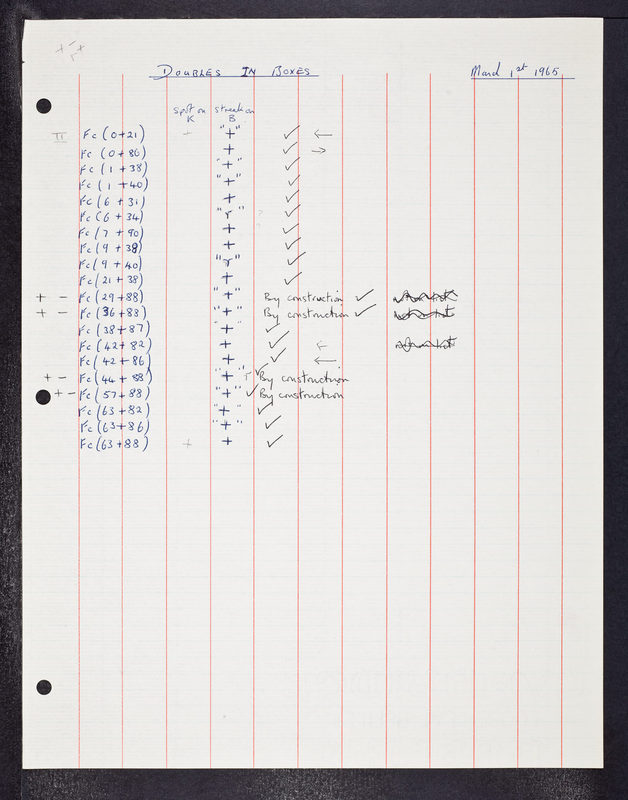 + - +
r
DOUBLES IN BOXES March 1st 1965
spot on streak on
K B
TI FC (0+21) + "+" ✓ ←
FC (0+86) + ✓ →
FC (1+38) "+" ✓
FC (1+40) "+" ✓
FC (6+31) + ✓
FC (6+34) "r" ? ✓
FC (7+90) + ? ✓
FC (9+38) + ✓
FC (9+40) "r" ✓
FC (21+38) + ✓
+ - FC (29+88) "+" By construction ✓
+ - FC (36+88) "+" By construction ✓
FC (38+87) "+" ✓
FC (42+82) + ✓ ←
FC (42+86) + ✓ ←
+ - FC (44+88) "+" ✓ By construction
+ - FC (57+88) "+" ✓ By construction
FC (63+82) "+" ✓
FC (63+86) "+" ✓
FC (63+88) + + ✓